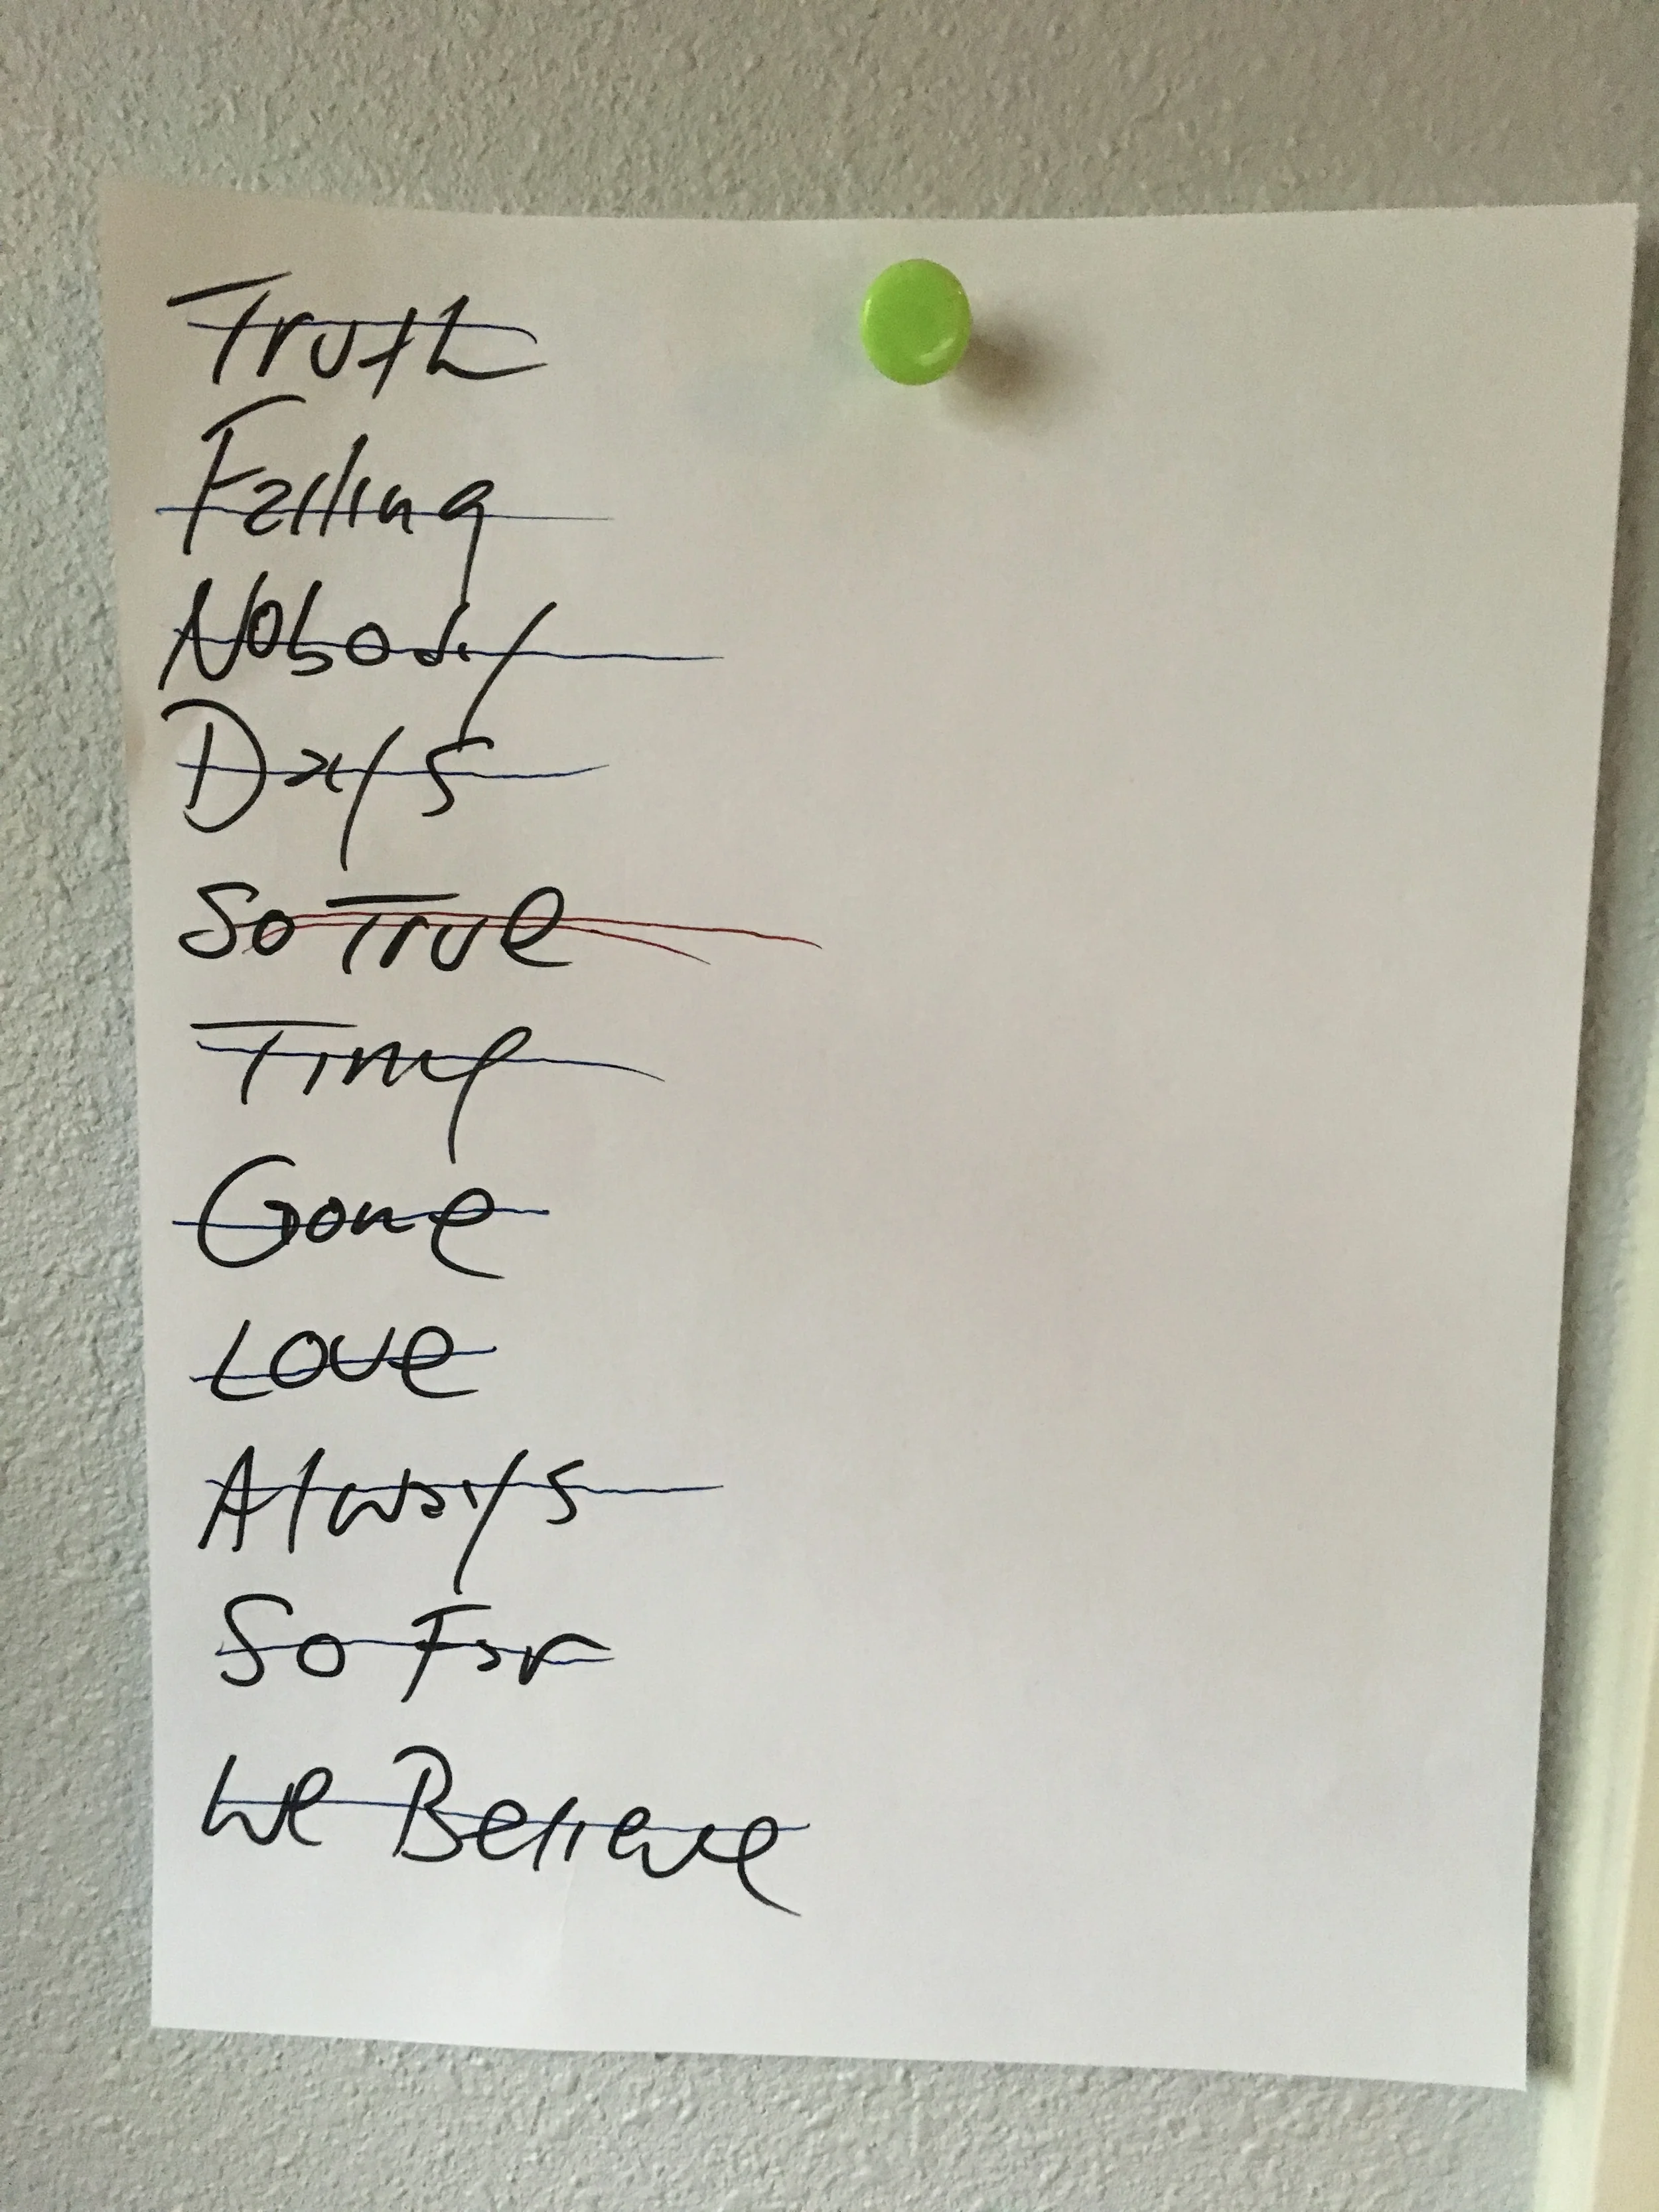 Truth
Falling
Nobody
Days
So True
Time
Gone
Love
Always
So Far
We Believe